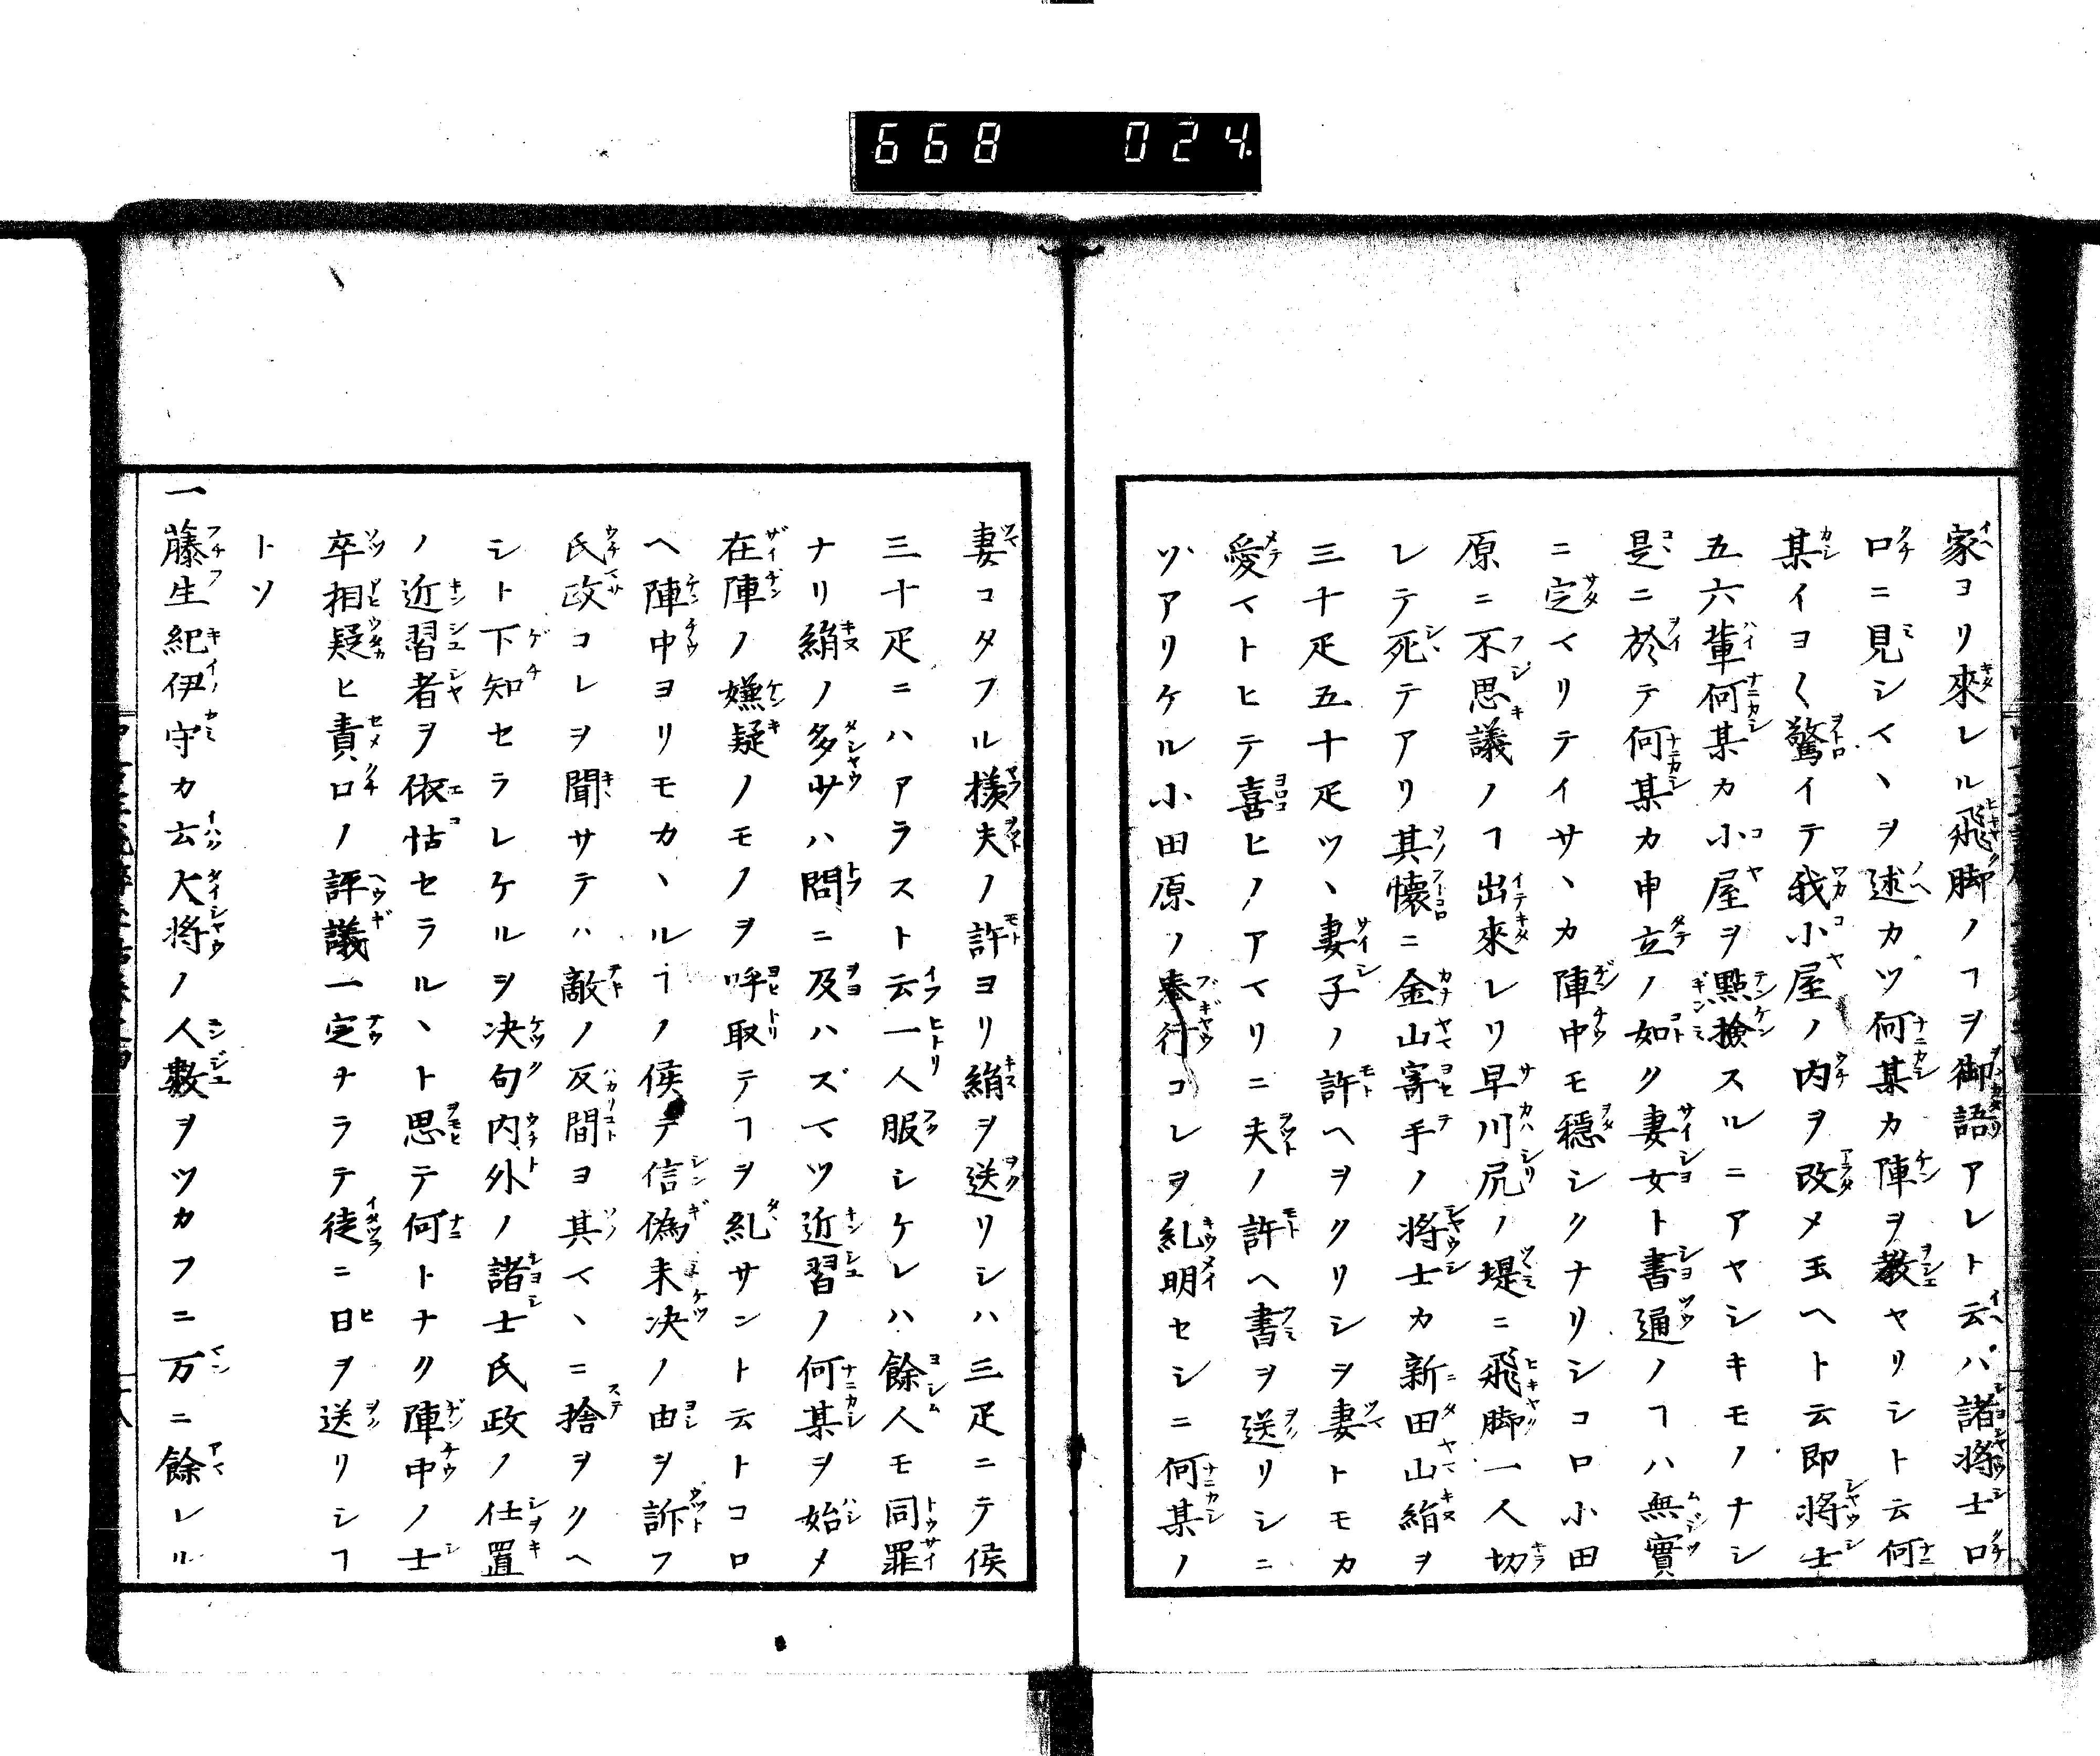 668 024
家ヨリ來レル飛脚ノヿヲ御語アレト云ハ諸將士口
口ニ見シイヽヲ述カツ何某カ陣ヲ教ヤリシト云何
某イヨ〱驚イテ我小屋ノ内ヲ改メ玉ヘト云即將士
五六輩何某カ小屋ヲ點撿スルニアヤシキモノナシ
是ニ於テ何某カ申立ノ如ク妻女ト書通ノヿハ無實
ニ定マリテイサヽカ陣中モ穏シクナリシコロ小田
原ニ不思議ノヿ出來レリ早川尻ノ堤ニ飛脚一人切
レテ死テアリ其懷ニ金山寄手ノ將士カ新田山絹ヲ
三十疋五十疋ツヽ妻子ノ許ヘヲクリシヲ妻トモカ
愛マトヒテ喜ヒノアマリニ夫ノ許ヘ書ヲ送リシニ
ソアリケル小田原ノ奉行コレヲ糺明セシニ何某ノ
妻コタフル樣夫ノ許ヨリ絹ヲ送リシハ三疋ニテ候
三十疋ニハアラスト云一人服シケレハ餘人モ同罪
ナリ絹ノ多少ハ問ニ及ハズマツ近習ノ何某ヲ始メ
在陣ノ嫌疑ノモノヲ呼取テヿヲ糺サント云トコロ
ヘ陣中ヨリモカヽルヿノ候テ信偽未决ノ由ヲ訴フ
氏政コレヲ聞サテハ敵ノ反間ヨ其マヽニ捨ヲクヘ
シト下知セラレケルヲ决句内外ノ諸士氏政ノ仕置
ノ近習者ヲ依怙セラルヽト思テ何トナク陣中ノ士
卒相疑ヒ責口ノ評議一定ナラテ徒ニ日ヲ送リシヿ
トソ
一藤生紀伊守カ云大將ノ人數ヲツカフニ万ニ餘レル